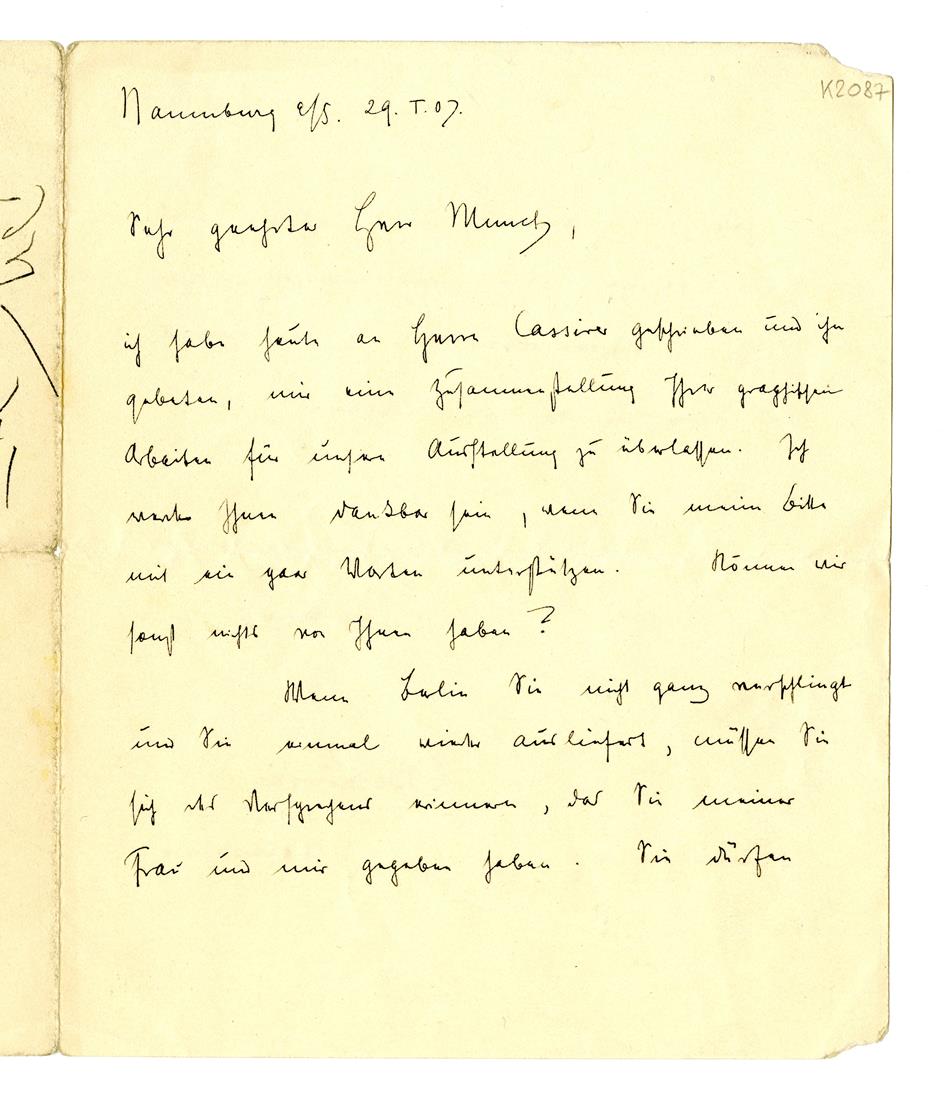 K2087
Naumburg a/S. 29. I. 07.
Sehr geehrter Herr Munch,
ich habe heute an Herrn Cassirer geschrieben und ihn
gebeten, mir eine Zusammenstellung Ihrer graphischen
Arbeiten für unsere Ausstellung zu überlassen. Ich
werde Ihnen dankbar sein, wenn Sie meine Bitte
mit ein paar Worten unterstützen. Können wir
sonst nichts von Ihnen haben?
Wenn Berlin Sie nicht ganz verschlingt
und Sie einmal wieder ausliefert, müssen Sie
sich des Versprechens erinnern, das Sie meiner
Frau und mir gegeben haben. Sie dürfen